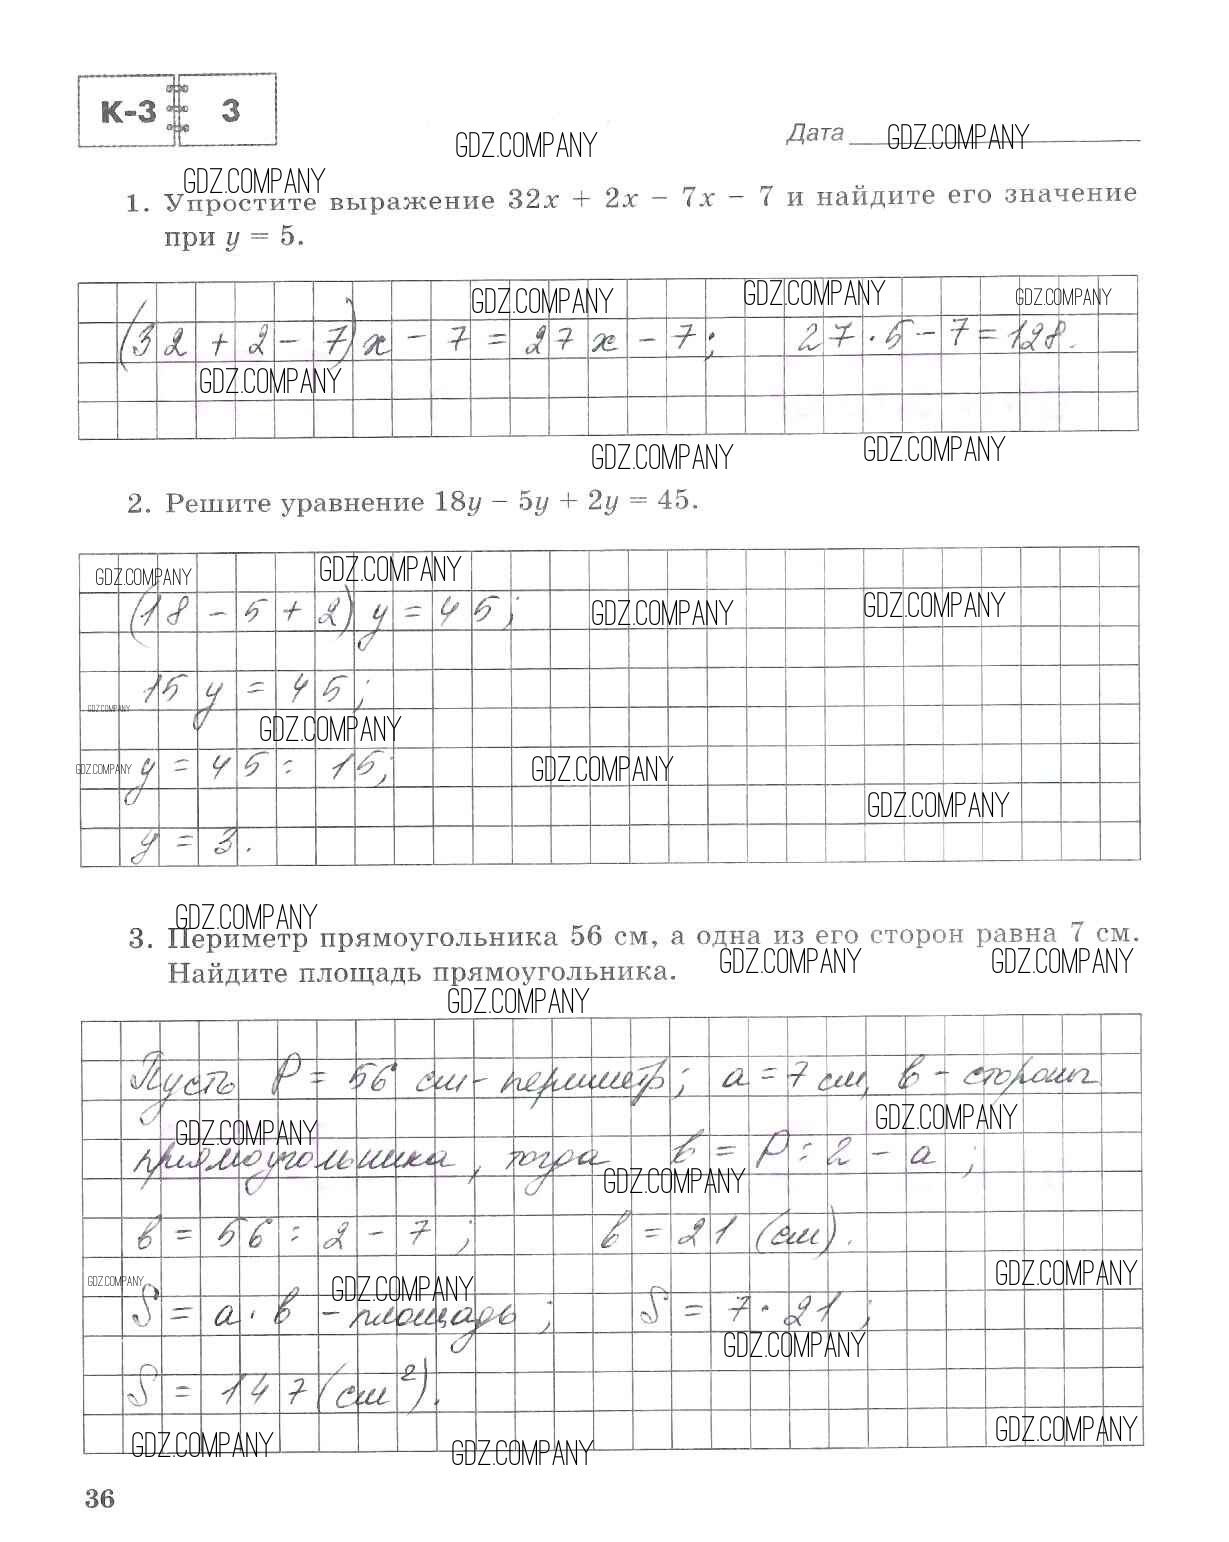 К-3 3
GDZ.COMPANY
Дата GDZ.COMPANY
GDZ.COMPANY
1. Упростите выражение 32x + 2x − 7x − 7 и найдите его значение
при y = 5.
GDZ.COMPANY GDZ.COMPANY GDZ.COMPANY
(32 + 2 − 7)x − 7 = 27x − 7; 27·5 − 7 = 128.
GDZ.COMPANY
GDZ.COMPANY GDZ.COMPANY
2. Решите уравнение 18y − 5y + 2y = 45.
GDZ.COMPANY GDZ.COMPANY
(18 − 5 + 2)y = 45; GDZ.COMPANY GDZ.COMPANY
15y = 45;
GDZ.COMPANY GDZ.COMPANY
GDZ.COMPANY y = 45 : 15; GDZ.COMPANY
GDZ.COMPANY
y = 3.
GDZ.COMPANY
3. Периметр прямоугольника 56 см, а одна из его сторон равна 7 см.
GDZ.COMPANY GDZ.COMPANY
Найдите площадь прямоугольника.
GDZ.COMPANY
Пусть P = 56 см - периметр; a = 7 см, в - стороны
GDZ.COMPANY GDZ.COMPANY
прямоугольника, тогда в = P : 2 − a;
GDZ.COMPANY
в = 56 : 2 − 7; в = 21 (см).
GDZ.COMPANY GDZ.COMPANY GDZ.COMPANY
S = a · в - площадь; S = 7 · 21;
GDZ.COMPANY
S = 147 (см²).
GDZ.COMPANY GDZ.COMPANY GDZ.COMPANY
36